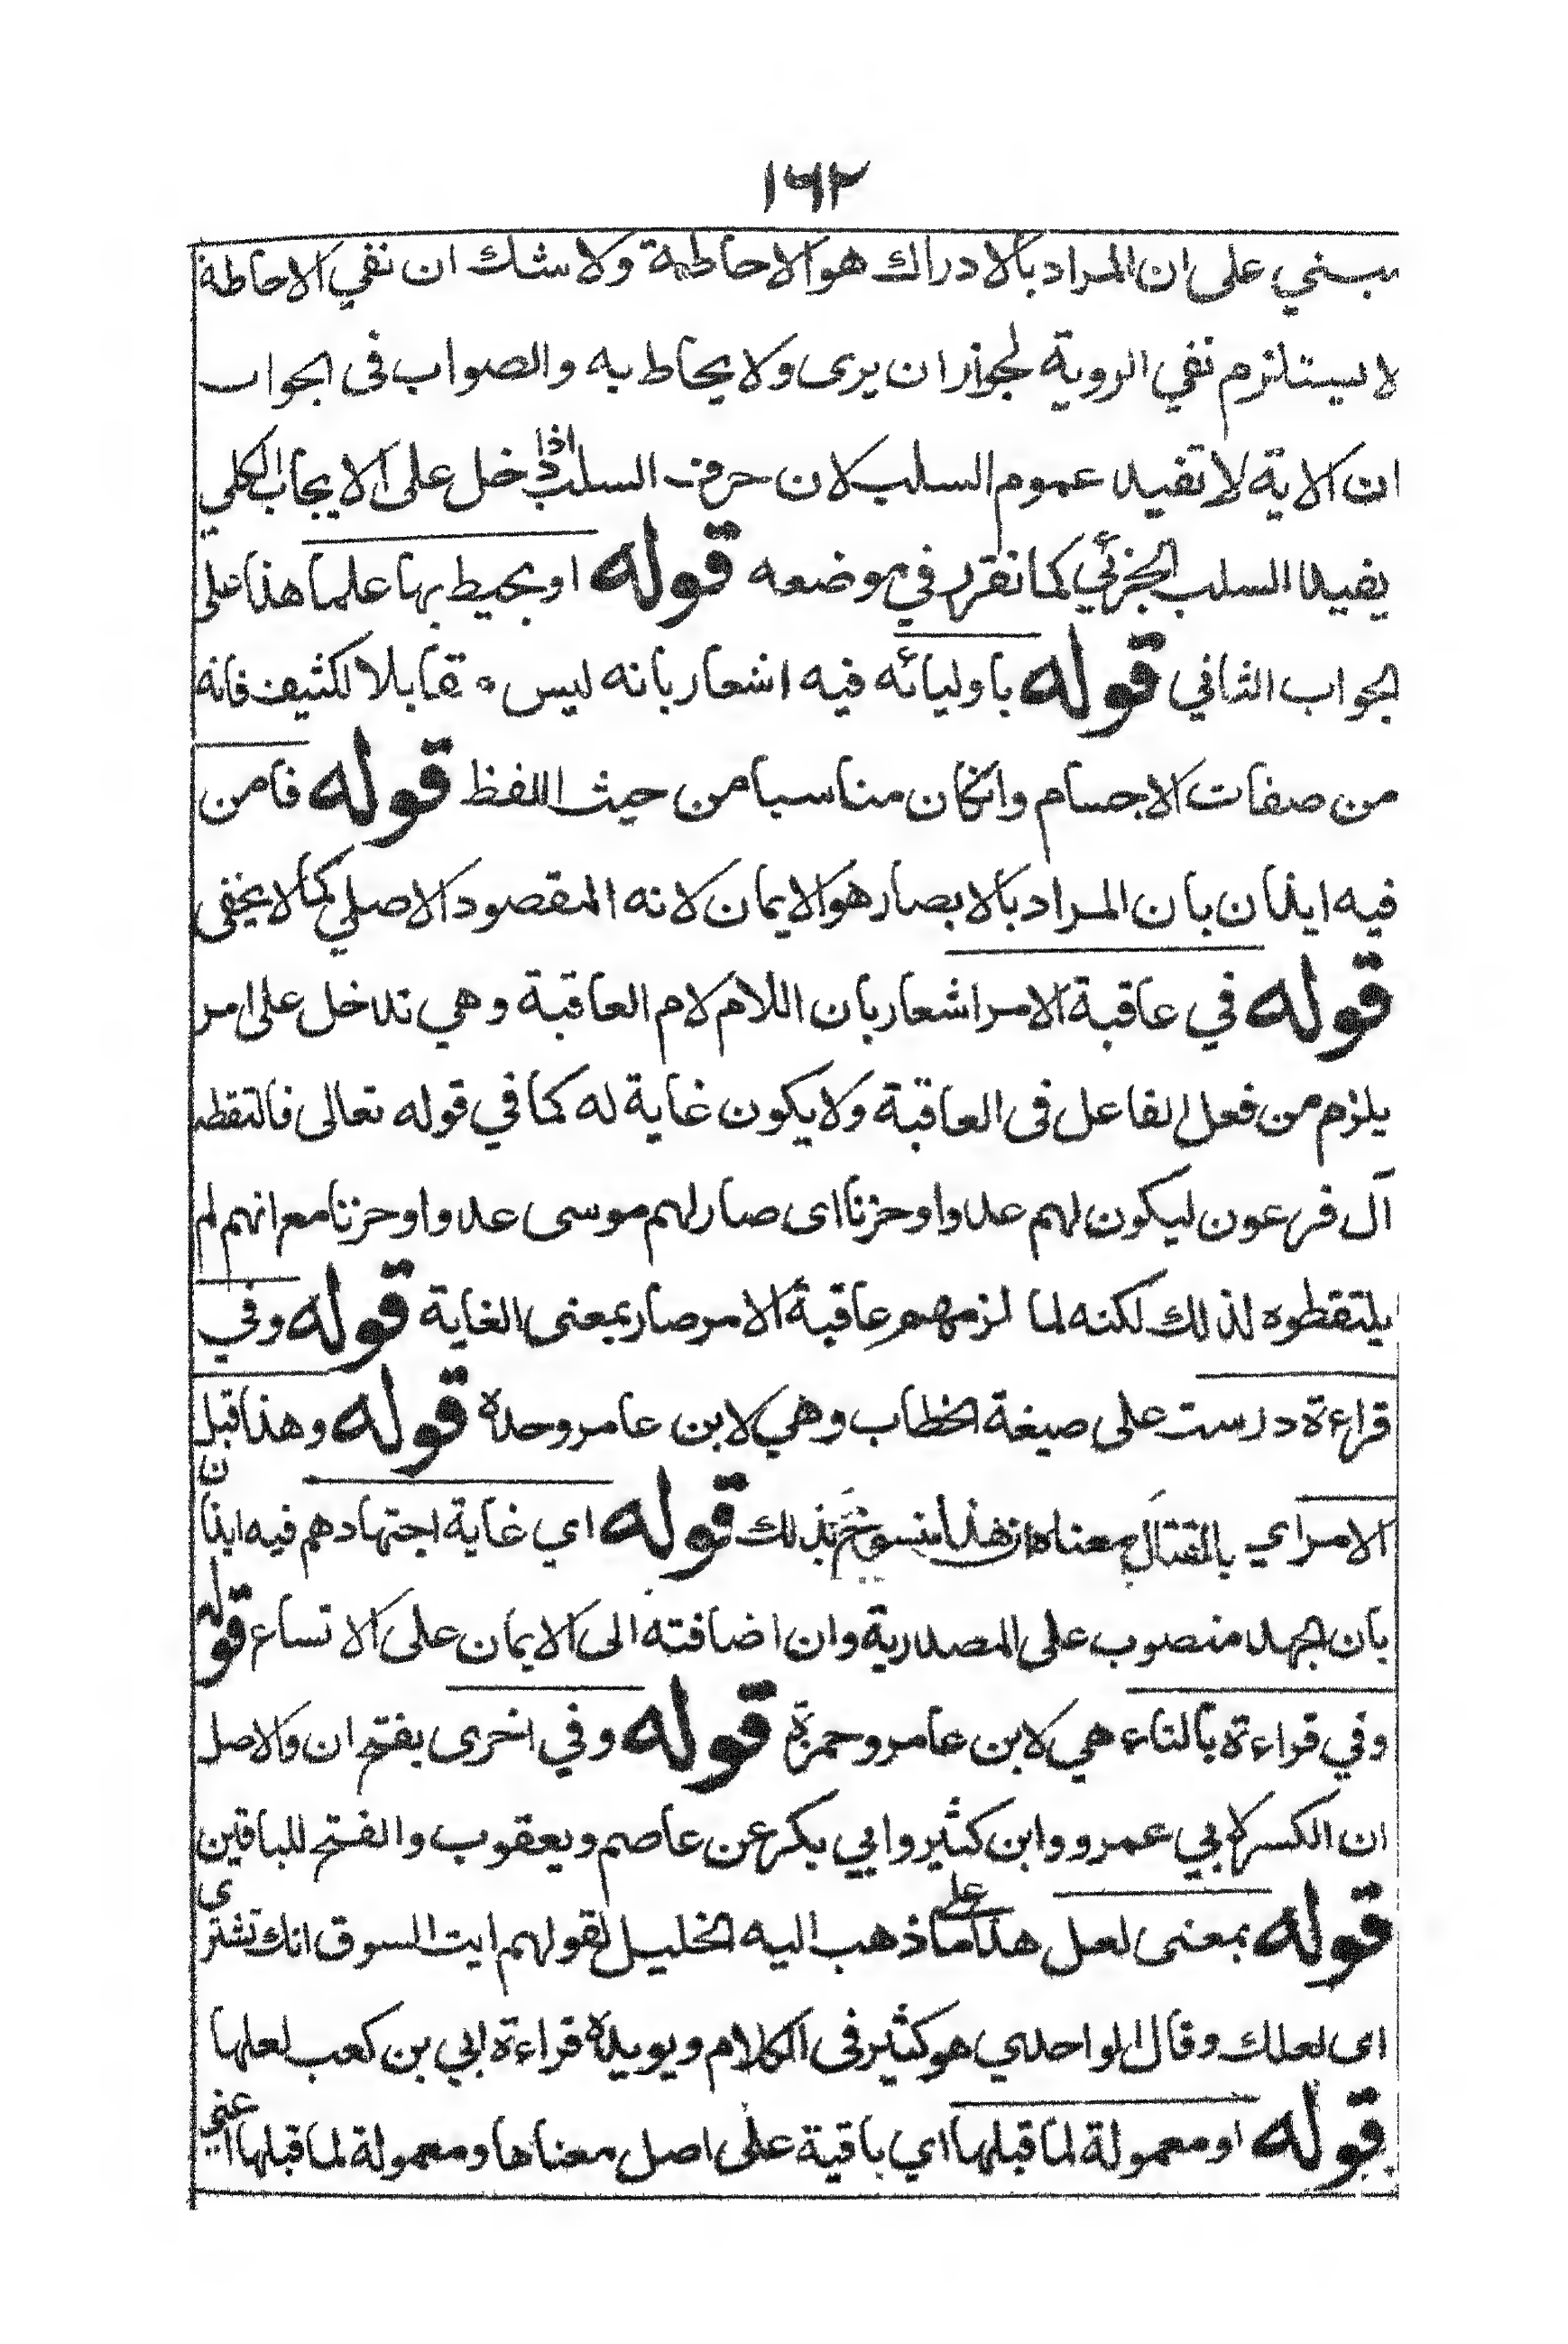 ١٦٢
مبني على ان المراد بالادراك هو الاحاطة ولا شك ان نفي الاحاطة
لا يستلزم نفي الروية لجواز ان يرى ولا يحاط به والصواب فى الجواب
ان الاية لا تفيد عموم السلب لان حرف السلب اذا دخل على الايجاب الكلي
يفيد السلب الجزئي كما تقرر في موضعه قوله او يحيط بها علما هذا على
الجواب الثاني قوله باوليائه فيه اشعار بانه ليس مقابلا لكثيف فانه
من صفات الاجسام وانكان مناسبا من حيث اللفظ قوله فامن
فيه ايذان بان المراد بالابصار هو الايمان لانه المقصود الاصلي كما لا يخفى
قوله في عاقبة الامر اشعار بان اللام لام العاقبة وهي تدخل على امر
يلزم من فعل الفاعل فى العاقبة ولا يكون غاية له كما في قوله تعالى فالتقطه
آل فرعون ليكون لهم عدوا وحزنا اى صار لهم موسى عدوا وحزنا مع انهم لم
يلتقطوه لذلك لكنه لما لزمهم عاقبة الامر صار بمعنى الغاية قوله وفي
قراءة درست على صيغة الخطاب وهي لابن عامر وحده قوله وهذا قبل
الامر اي بالقتال معناه ان هذا منسوخ بذلك قوله اي غاية اجتهادهم فيه ايذان
بان جهد منصوب على المصدرية وان اضافته الى الايمان على الاتساع قوله
وفي قراءة بالتاء هي لابن عامر وحمزة قوله وفي اخرى بفتح ان والاصل
ان الكسر لابي عمرو وابن كثير وابي بكر عن عاصم ويعقوب والفتح للباقين
قوله بمعنى لعل هذا على ما ذهب اليه الخليل لقولهم ايت السوق انك تشترى
اى لعلك وقال الواحدي هو كثير فى الكلام ويويده قراءة ابي بن كعب لعلها
قوله او معمولة لما قبلها اي باقية على اصل معناها ومعمولة لما قبلها اعني